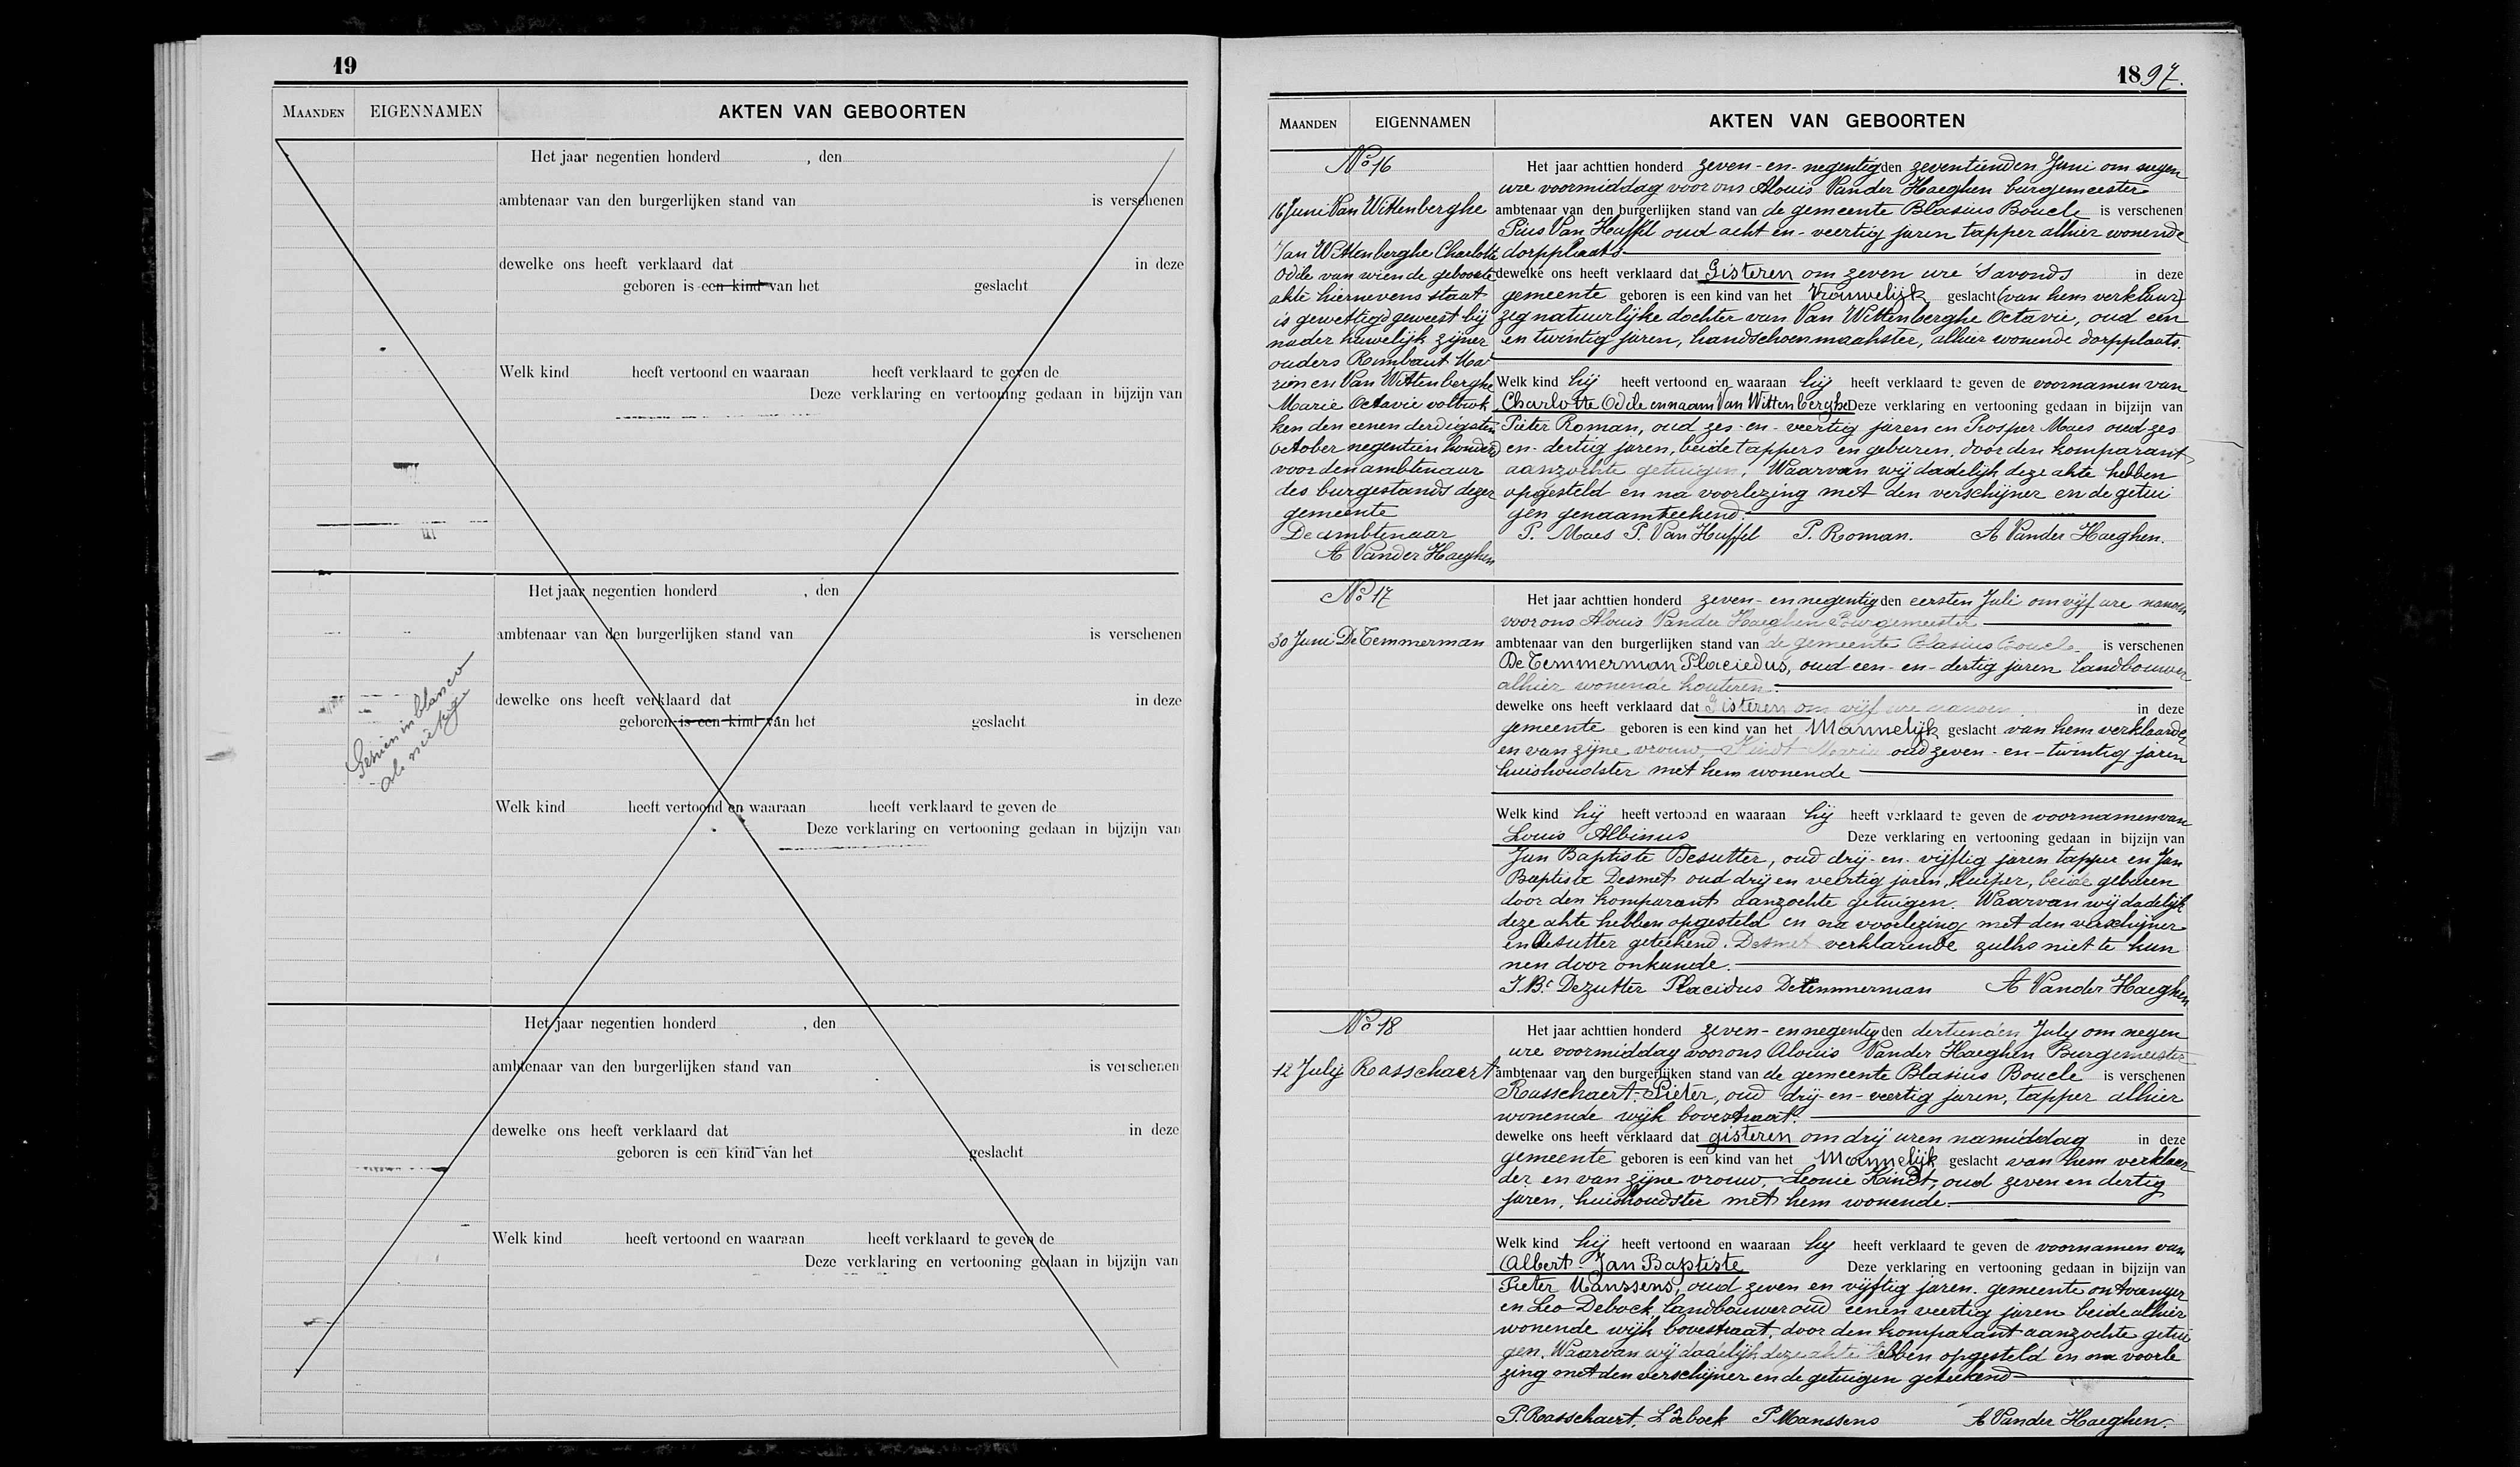 19
MAANDEN EIGENNAMEN AKTEN VAN GEBOORTEN
Het jaar negentien honderd , den
ambtenaar van den burgerlijken stand van is verschenen
dewelke ons heeft verklaard dat in deze
geboren is een kind van het geslacht
Welk kind heeft vertoond en waaraan heeft verklaard te geven de
Deze verklaring en vertooning gedaan in bijzijn van
Het jaar negentien honderd , den
ambtenaar van den burgerlijken stand van is verschenen
dewelke ons heeft verklaard dat in deze
geboren is een kind van het geslacht
Gezien in blanco
als nietig
Welk kind heeft vertoond en waaraan heeft verklaard te geven de
Deze verklaring en vertooning gedaan in bijzijn van
Het jaar negentien honderd , den
ambtenaar van den burgerlijken stand van is verschenen
dewelke ons heeft verklaard dat in deze
geboren is een kind van het geslacht
Welk kind heeft vertoond en waaraan heeft verklaard te geven de
Deze verklaring en vertooning gedaan in bijzijn van
1897.
MAANDEN EIGENNAMEN AKTEN VAN GEBOORTEN
No 16
16 Juni Van Wittenberghe
Van Wittenberghe Charlotte
Odile van wiende geboorte
akte hiernevens staat
is gewettigd geweest bij
nader huwelijk zijner
ouders Rombaut
en Van Wittenberghe
Marie Octavie voltrok
ken den eenen derdigsten
October negentien honderd
voor den ambtenaar
des burgestands dezer
gemeente
De ambtenaar
A Vander Haeghen
Het jaar achttien honderd zeven-en-negentig den zeventienden Juni om negen
ure voormiddag voor ons Alouis Vander Haeghen burgemeester
ambtenaar van den burgerlijken stand van de gemeente Blasius Boucle is verschenen
Pius Van Huffel oud acht en-veertig jaren tapper alhier wonende
dorpplaats
dewelke ons heeft verklaard dat Gisteren om zeven ure 's avonds in deze
gemeente geboren is een kind van het Vrouwelijk geslacht (van hem verklaar)
zeg natuurlijke dochter van Van Wittenberghe Octavie, oud een
en twintig jaren, handschoenmaakster, alhier wonende dorpplaats.
Welk kind hij heeft vertoond en waaraan hij heeft verklaard te geven de voornamen van
Charlotte Odile en naam Van Wittenberghe Deze verklaring en vertooning gedaan in bijzijn van
Pieter Roman, oud zes-en-veertig jaren en Prosper Maes oud zes
en-dertig jaren, beide tappers en geburen, door den komparant
aanzochte getuigen. Waarvan wij dadelijk deze akte hebben
opgesteld en na voorlezing met den verschijner en de getui
gen genaamteekend
P. Maes P. Van Huffel P. Roman. A Vander Haeghen.
No 17
30 Juni De Temmerman
Het jaar achttien honderd zeven-en negentig den eersten Juli om vijf ure nanoen
voor ons Alouis Vander Haeghen Burgemeester
ambtenaar van den burgerlijken stand van de gemeente Blasius Boucle is verschenen
De Temmerman Placiedus, oud een-en-dertig jaren landbouwer
alhier wonende kouteren.
dewelke ons heeft verklaard dat Gisteren om vijf ure nanoen in deze
gemeente geboren is een kind van het Mannelijk geslacht van hem verklaarder
en van zijne vrouw Kindt Marie oud zeven-en-twintig jaren
huishoudster met hem wonende
Welk kind hij heeft vertoond en waaraan hij heeft verklaard te geven de voornamen van
Louis Albinus Deze verklaring en vertooning gedaan in bijzijn van
Jan Baptiste Desutter, oud drij-en-vijftig jaren tapper en Jan
Baptiste Desmet oud drij en veertig jaren, kuiper, beide geburen
door den komparant aanzochte getuigen. Waarvan wij dadelijk
deze akte hebben opgesteld en na voorlezing met den verschijner
en Desutter geteekend. Desmet verklarende zulks niet te kun
nen door onkunde.
J.Bt Dezutter Placidus Detemmerman A Vander Haeghen
No 18
12 July Rasschaert
Het jaar achttien honderd zeven-en negentig den dertienden July om negen
ure voormiddag voor ons Alouis Vander Haeghen Burgemeester
ambtenaar van den burgerlijken stand van de gemeente Blasius Boucle is verschenen
Rasschaert Pieter, oud drij-en-veertig jaren, tapper alhier
wonende wijk bovestraat.
dewelke ons heeft verklaard dat gisteren om drij uren namiddag in deze
gemeente geboren is een kind van het Mannelijk geslacht van hem verklaar
der en van zijne vrouw, Leonie Kindt, oud zeven en dertig
jaren, huishoudster met hem wonende.
Welk kind hij heeft vertoond en waaraan hij heeft verklaard te geven de voornamen van
Albert Jan Baptiste Deze verklaring en vertooning gedaan in bijzijn van
Pieter Manssens, oud zeven en vijftig jaren. gemeente ontvanger
en Leo Debock, landbouwer oud eenen veertig jaren beide alhier
wonende wijk bovestraat, door den komparant aanzochte getui
gen. Waarvan wij dadelijk deze akte hebben opgesteld en na voorle
zing met den verschijner en de getuigen geteekend
P. Rasschaert, L Debock P Manssens A Vander Haeghen.